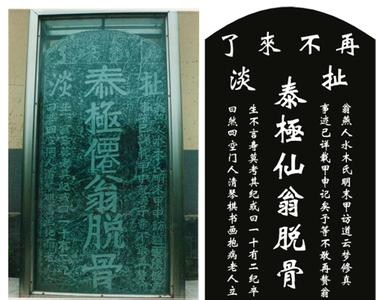 再不來了
扯淡
泰極僊翁脱骨
再不來了
扯淡
翁燕人水木氏明末甲访道云梦修真
事迹已详载甲申记矣予等不敢再赘翁
泰極仙翁脱骨
生不言寿莫考其纪或曰一十有二纪卒
曰然四空门人清琴棋书画抱病老人立